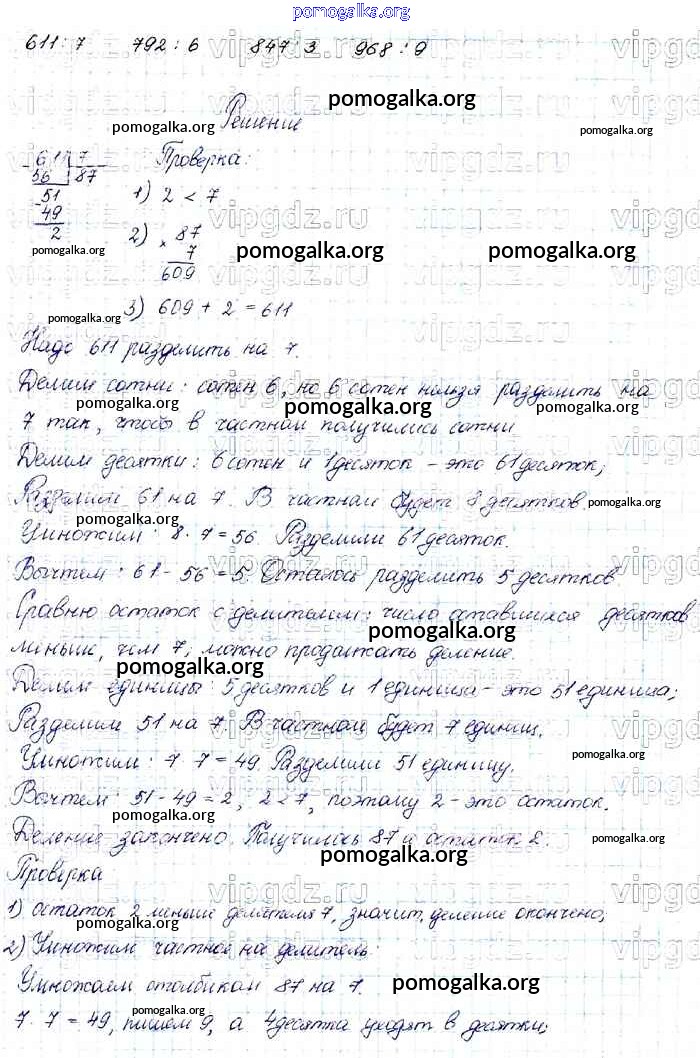 pomogalka.org
611 : 7 792 : 6 847 : 3 968 : 9
vipgdz.ru
pomogalka.org
Решение
pomogalka.org
611 7 Проверка:
56 87
51 1) 2 < 7
49
2 2) × 87
7
609
pomogalka.org pomogalka.org pomogalka.org
pomogalka.org
3) 609 + 2 = 611
Надо 611 разделить на 7.
Делим сотни: сотен 6, но 6 сотен нельзя разделить на
pomogalka.org pomogalka.org pomogalka.org
7 так, чтобы в частном получились сотни
Делим десятки: 6 сотен и 1 десяток – это 61 десяток;
pomogalka.org
Разделим 61 на 7. В частном будет 8 десятков.
pomogalka.org
pomogalka.org
Умножим: 8 · 7 = 56. Разделили 61 десяток.
Вычтем: 61 - 56 = 5. Осталось разделить 5 десятков
Сравню остаток с делителем: число оставшихся десятков
pomogalka.org
меньше, чем 7, можно продолжать деление.
pomogalka.org
Делим единицы: 5 десятков и 1 единица – это 51 единица;
Разделим 51 на 7. В частном будет 7 единиц.
Умножим: 7 · 7 = 49. Разделили 51 единицу.
pomogalka.org
Вычтем: 51 - 49 = 2, 2 < 7, поэтому 2 – это остаток.
pomogalka.org
Деление закончено. Получилось 87 и остаток 2.
pomogalka.org
pomogalka.org
Проверка
1) остаток 2 меньше делителя 7, значит, деление окончено;
pomogalka.org
2) Умножим частное на делитель:
Умножаем столбиком 87 на 7.
pomogalka.org
7 · 7 = 49, пишем 9, а 4 десятка уходят в десятки;
pomogalka.org